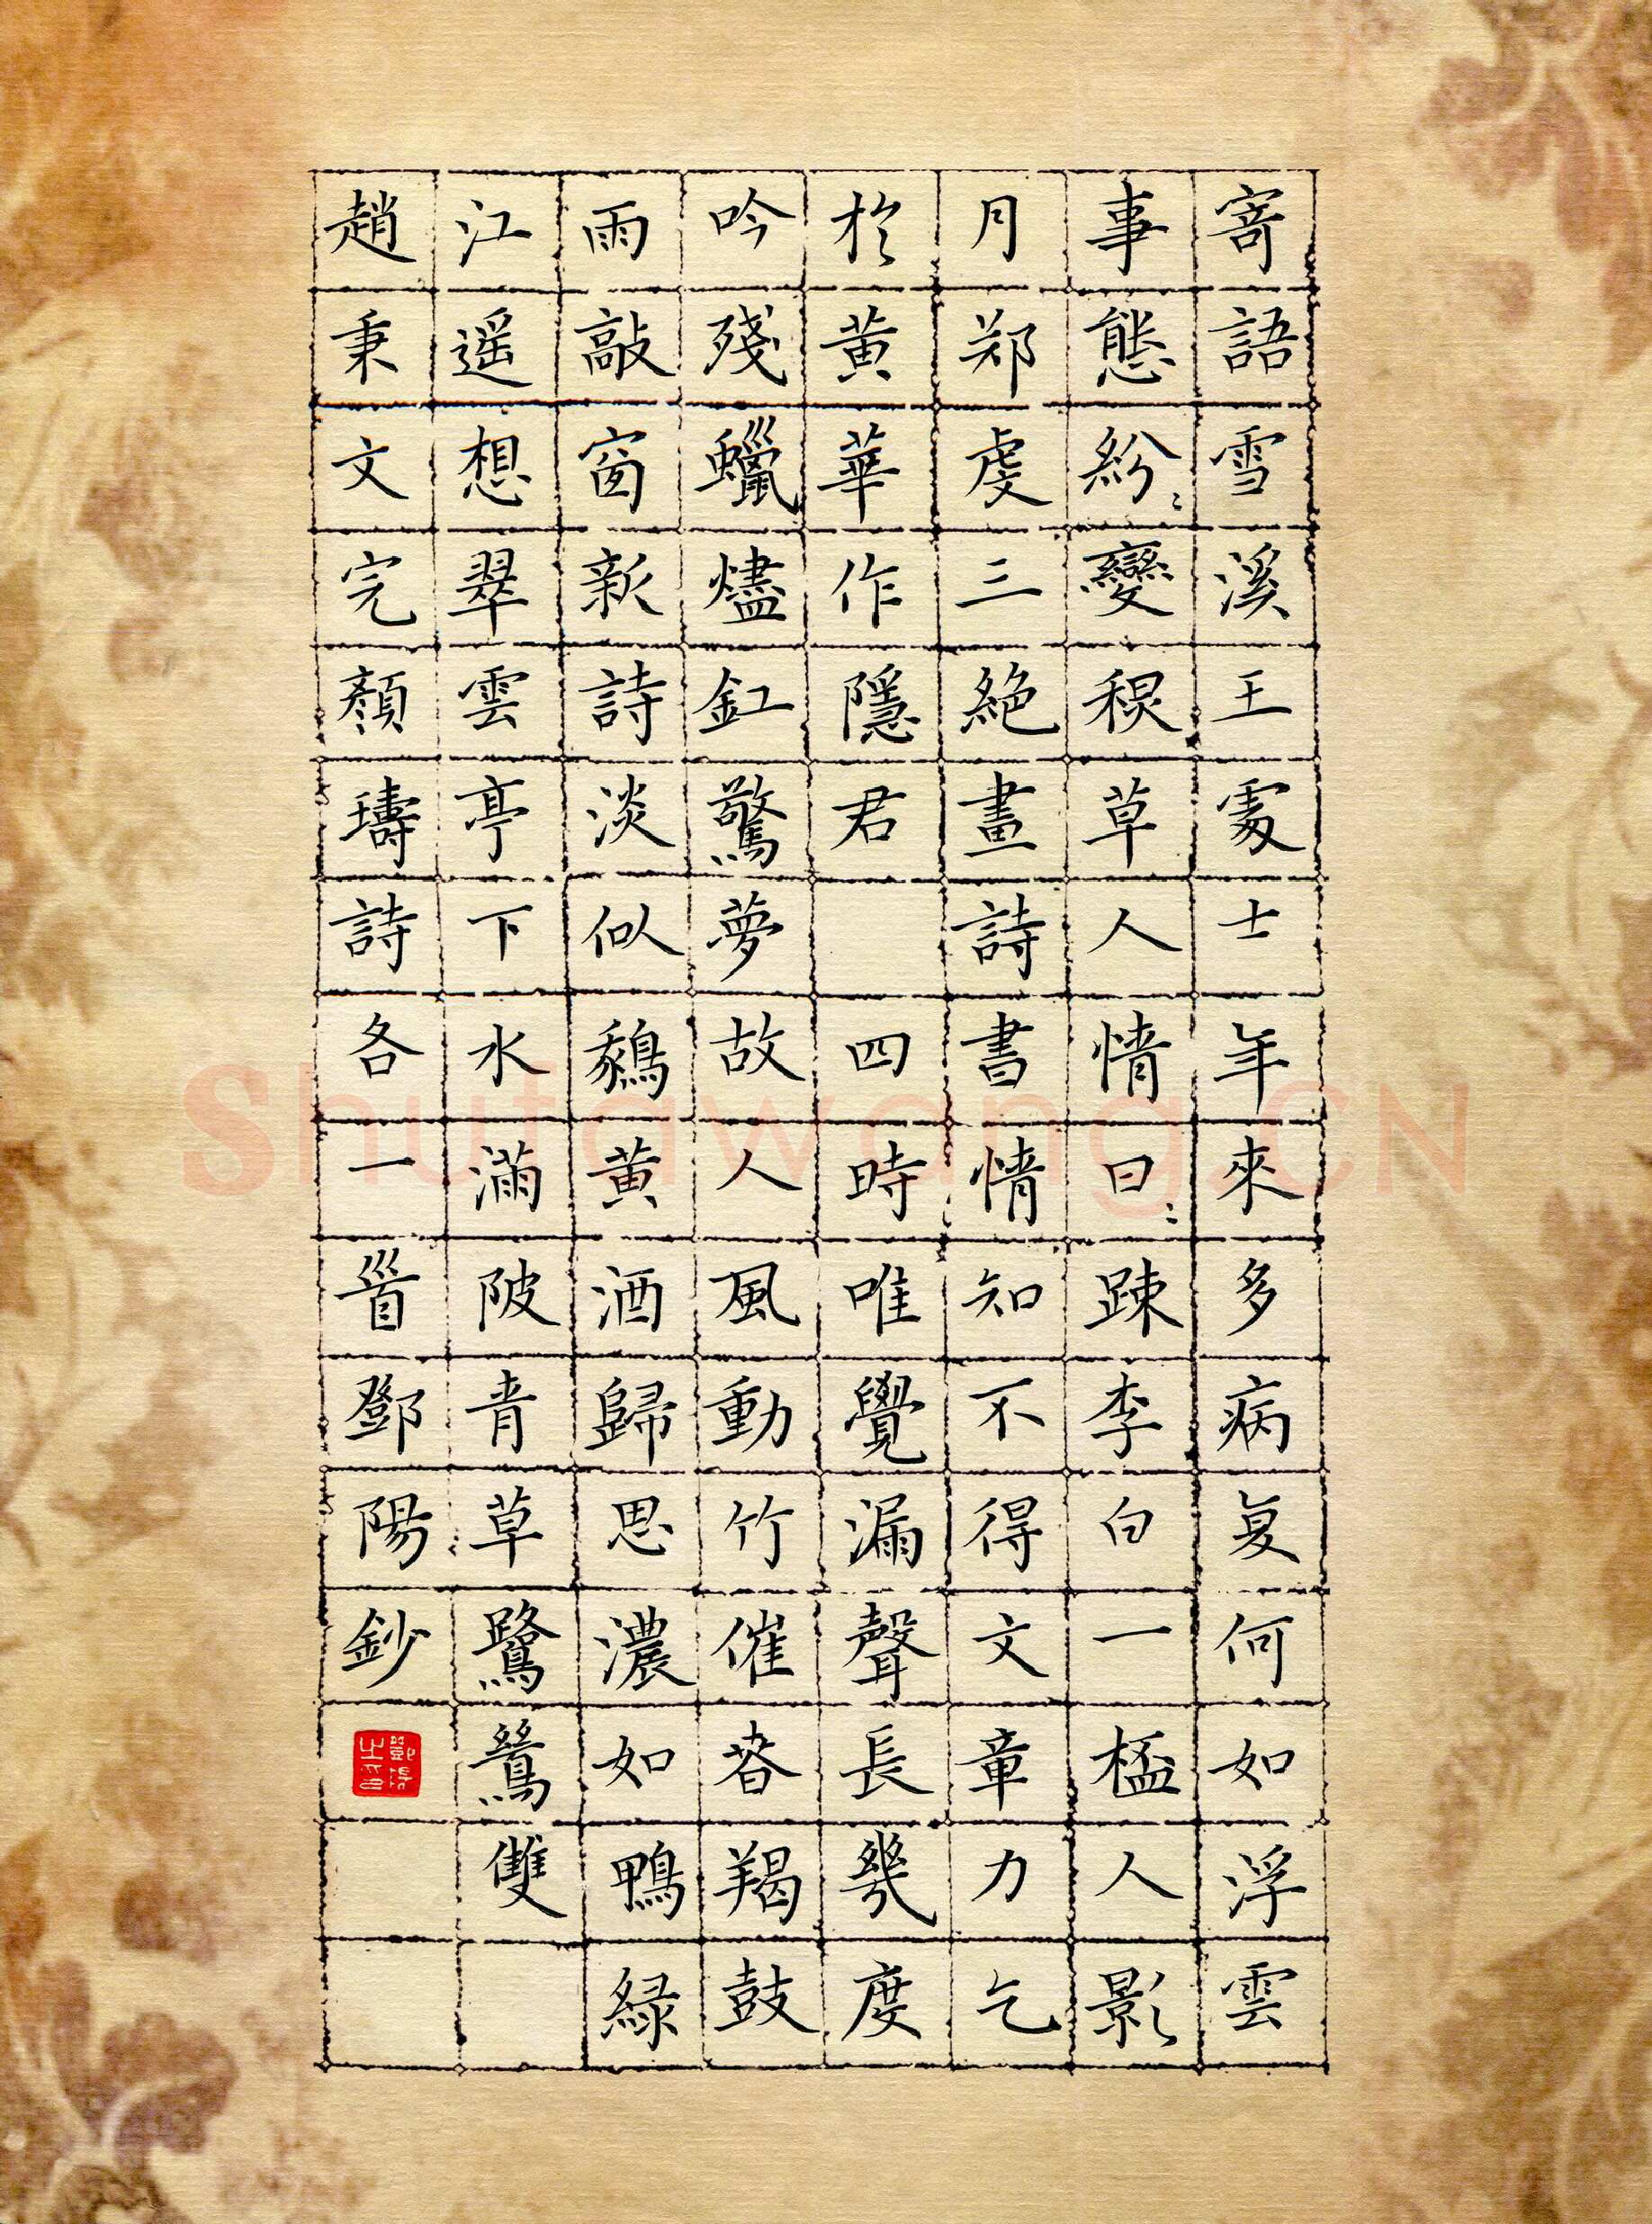 寄語雪溪王處士年來多病复何如浮雲
事態紛〻變秋草人情日〻踈李白一桮人影
月郑虔三絶畫詩書情知不得文章力乞
於黄華作隱君 四時唯覺漏聲長幾度
吟殘蠟燼釭驚夢故人風動竹催春羯鼓
雨敲窗新詩淡似鵝黄酒歸思濃如鴨緑
江遥想翠雲亭下水滿陂青草鷺鷥雙
趙秉文完顔璹詩各一首鄧陽鈔
Shufawang.CN